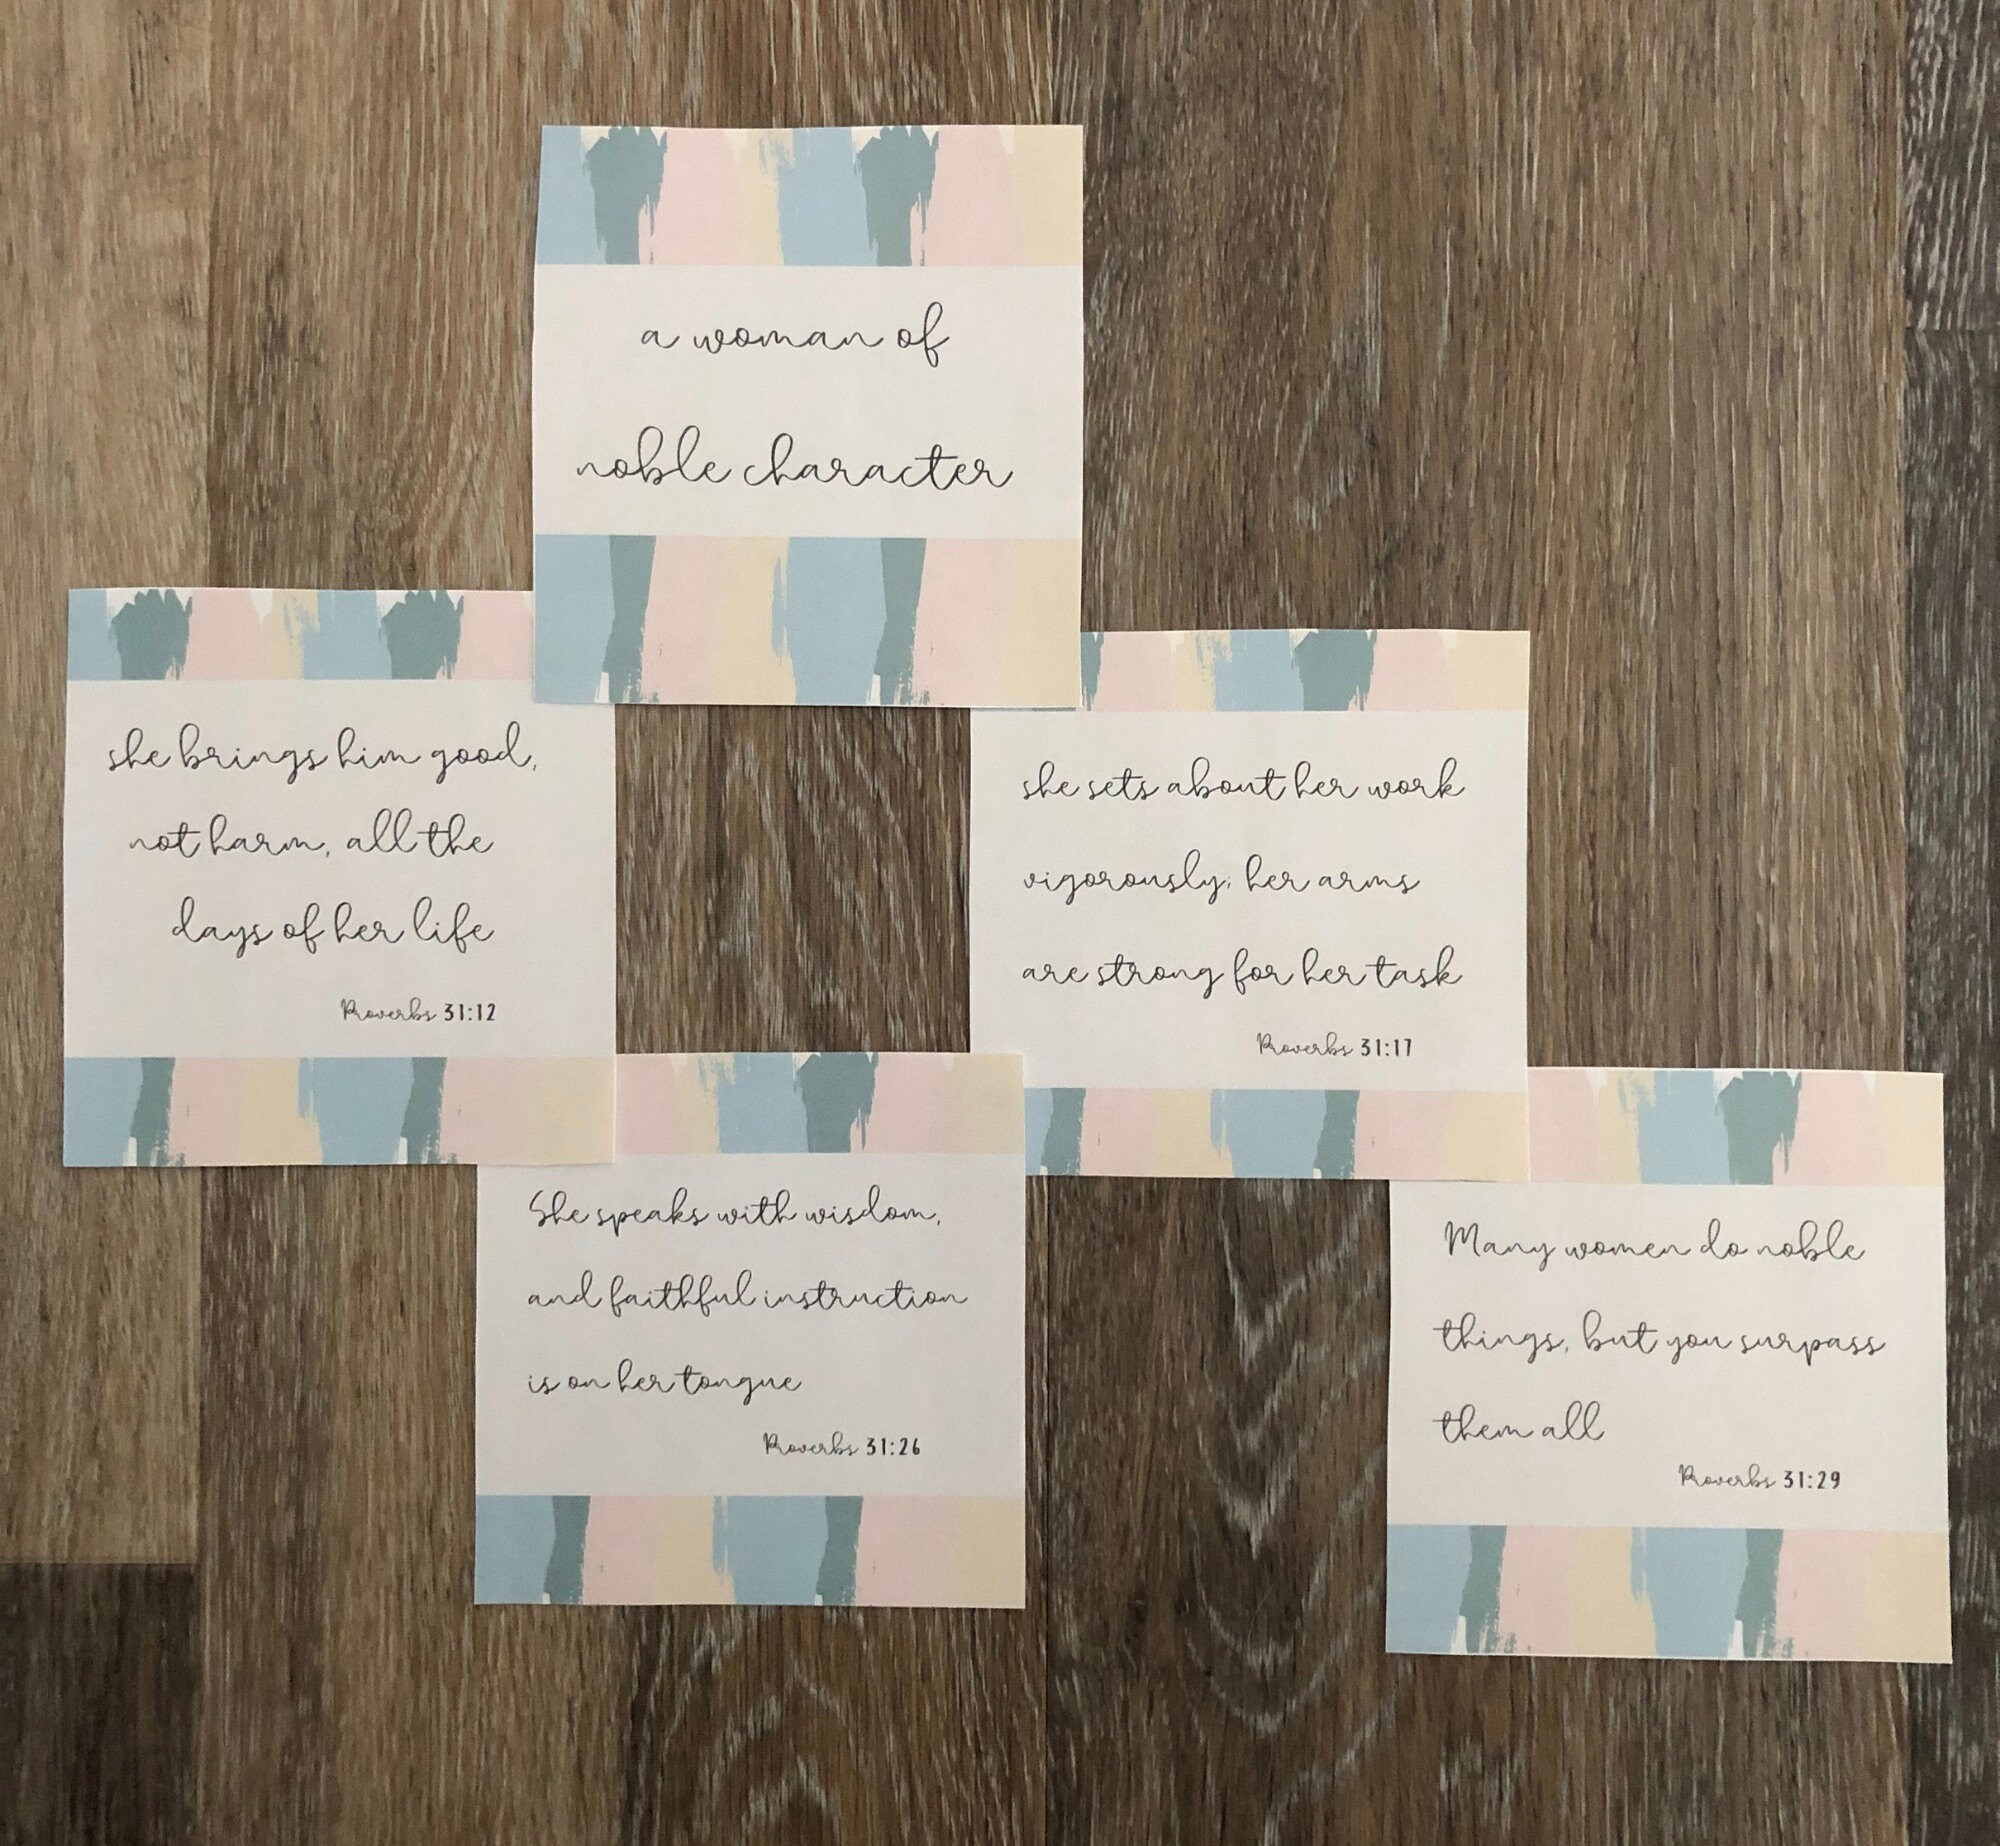 a woman of
noble character
she brings him good,
not harm, all the
days of her life
Proverbs 31:12
she sets about her work
vigorously; her arms
are strong for her task
Proverbs 31:17
She speaks with wisdom,
and faithful instruction
is on her tongue
Proverbs 31:26
Many women do noble
things, but you surpass
them all
Proverbs 31:29